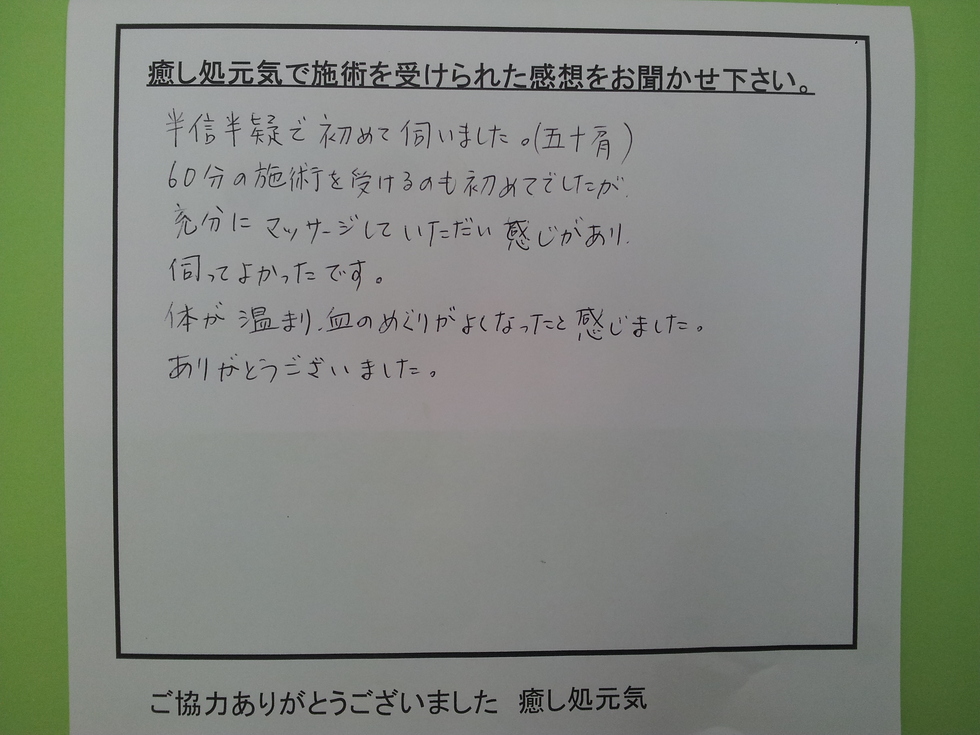 癒し処元気で施術を受けられた感想をお聞かせ下さい。
半信半疑で初めて伺いました。(五十肩)
60分の施術を受けるのも初めてでしたが、
充分にマッサージしていただい感じがあり、
伺ってよかったです。
体が温まり、血のめぐりがよくなったと感じました。
ありがとうございました。
ご協力ありがとうございました 癒し処元気